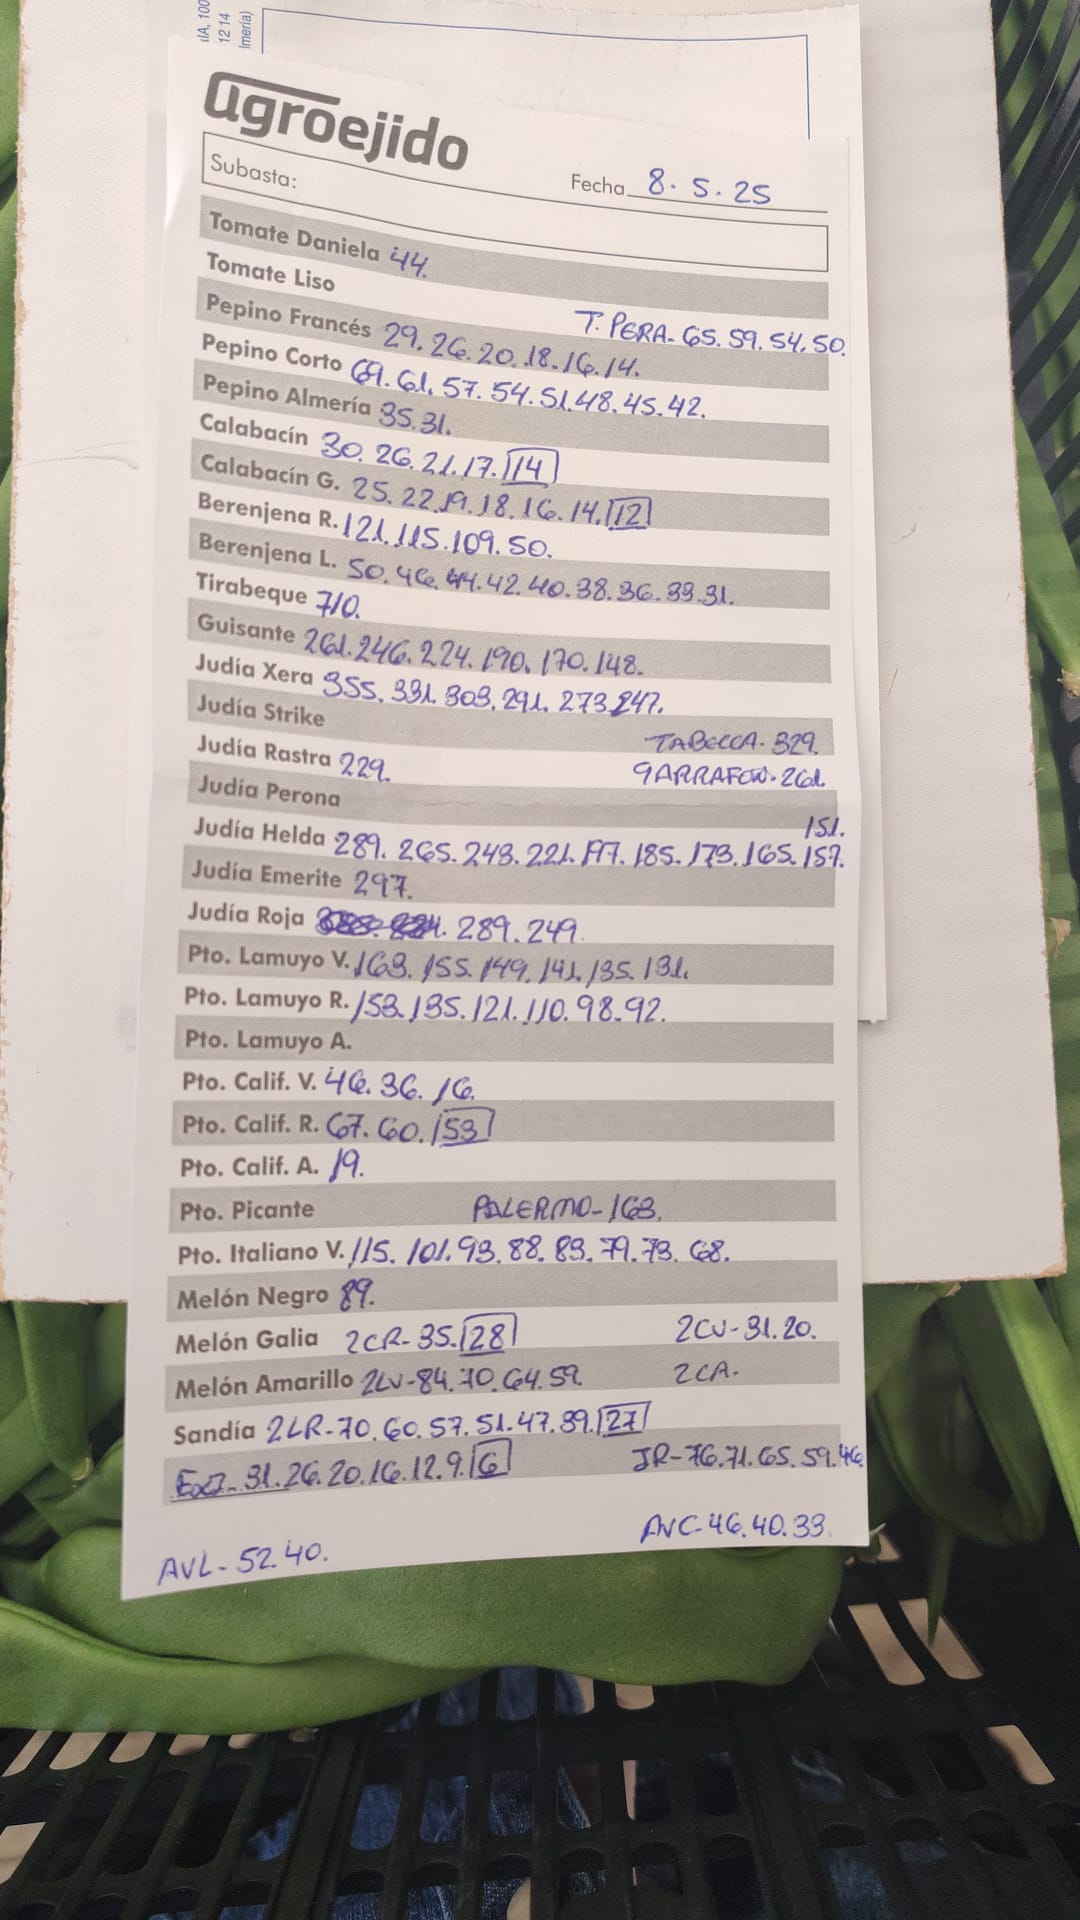 IA, 100
12 14
lmería)
agroejido
Subasta:
Fecha 8. 5. 25
Tomate Daniela 44.
Tomate Liso
T. PERA. 65. 59. 54. 50.
Pepino Francés 29. 26. 20. 18. 16. 14.
Pepino Corto 69. 61. 57. 54. 51. 48. 45. 42.
Pepino Almería 35. 31.
Calabacín 30. 26. 21. 17. 14
Calabacín G. 25. 22. 19. 18. 16. 14. 12
Berenjena R. 121. 115. 109. 50.
Berenjena L. 50. 46. 44. 42. 40. 38. 36. 33. 31.
Tirabeque 710.
Guisante 261. 246. 224. 190. 170. 148.
Judía Xera 355. 331. 303. 291. 273. 247.
Judía Strike
TABELLA. 329.
Judía Rastra 229.
GARRAFON. 261.
Judía Perona
151.
Judía Helda 289. 265. 243. 221. 197. 185. 173. 165. 157.
Judía Emerite 297.
Judía Roja 289. 249.
Pto. Lamuyo V. 163. 155. 149. 141. 135. 131.
Pto. Lamuyo R. 153. 135. 121. 110. 98. 92.
Pto. Lamuyo A.
Pto. Calif. V. 46. 36. 16.
Pto. Calif. R. 67. 60. 53
Pto. Calif. A. 19.
Pto. Picante PALERMO- 163.
Pto. Italiano V. 115. 101. 93. 88. 83. 79. 73. 68.
Melón Negro 89.
Melón Galia 2CR- 35. 28 2CV- 31. 20.
Melón Amarillo 2LV- 84. 70. 64. 59. 2CA.
Sandía 2LR- 70. 60. 57. 51. 47. 39. 27
31. 26. 20. 16. 12. 9. 6 JR- 76. 71. 65. 59. 46.
AVC- 46. 40. 33.
AVL- 52. 40.